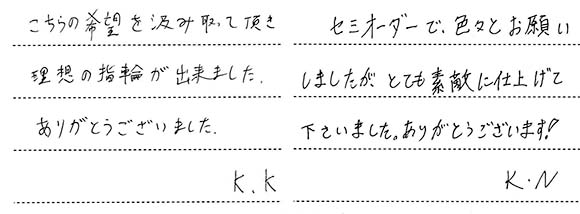 こちらの希望を汲み取って頂き
理想の指輪が出来ました.
ありがとうございました.
K.K
セミオーダーで、色々とお願い
しましたが、とても素敵に仕上げて
下さいました。ありがとうございます!
K・N